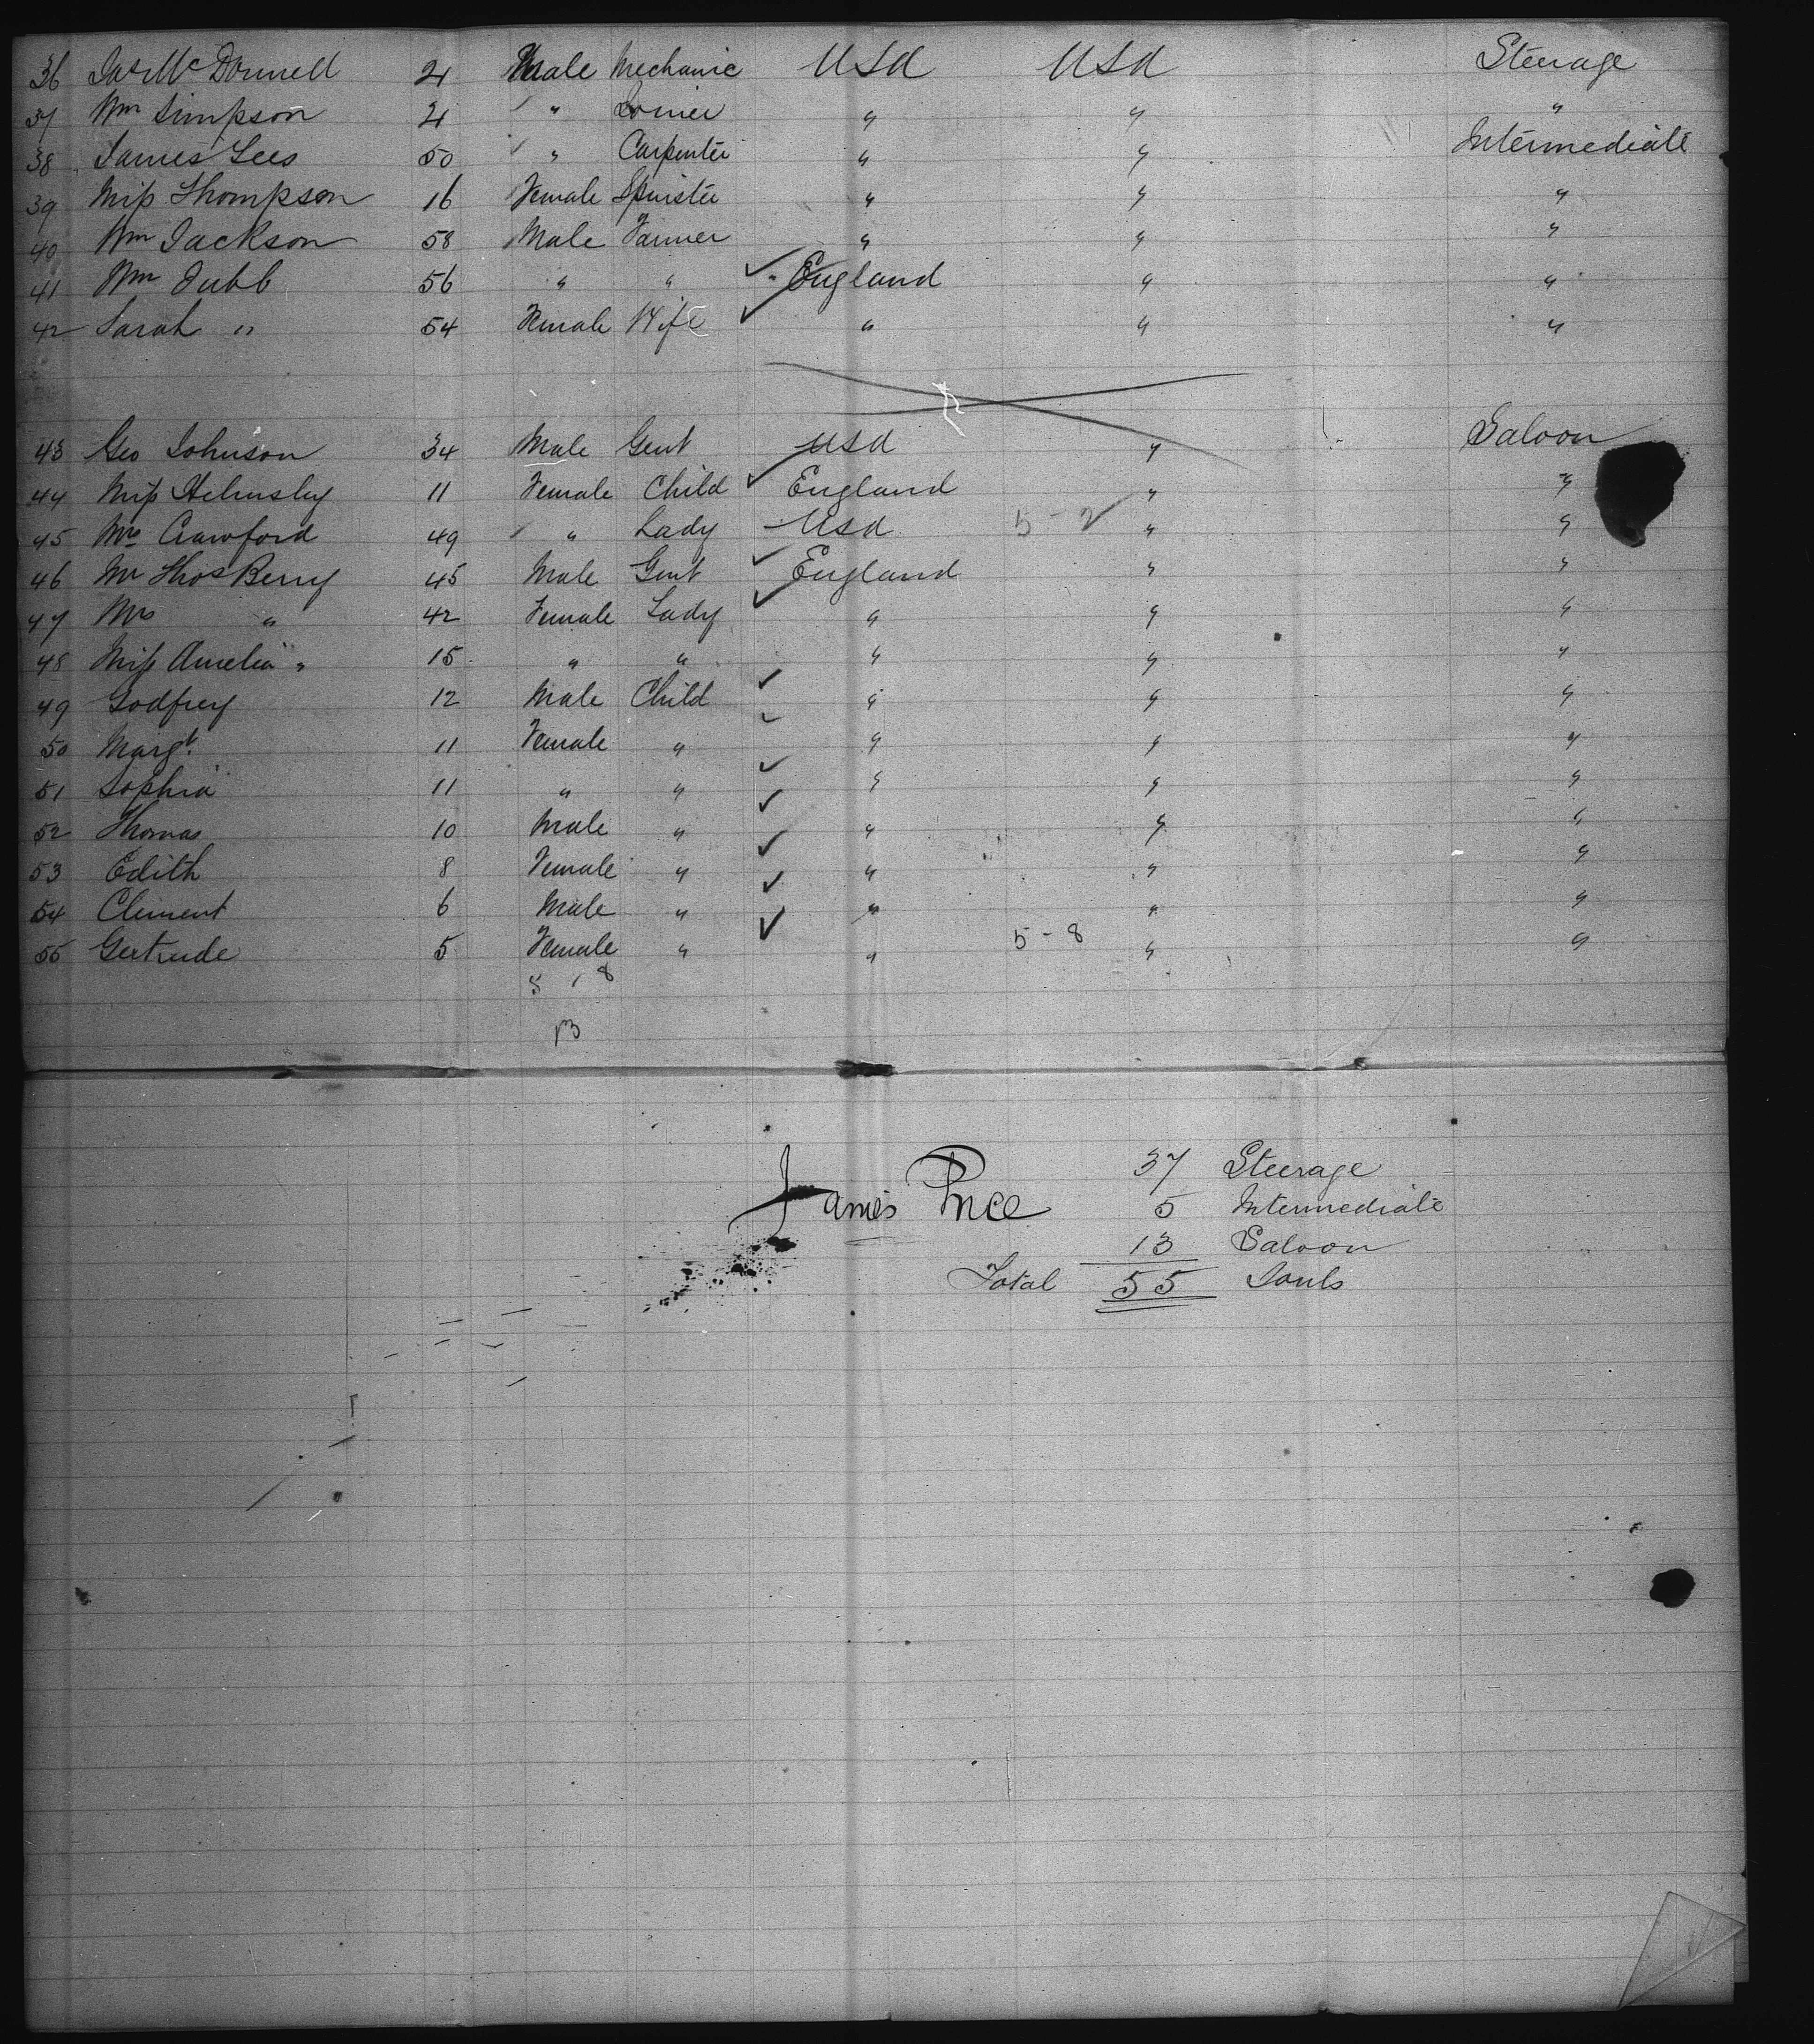 36 Jas McDonnell 21 Male Mechanic USA USA Steerage
37 Wm Simpson 21 " " " "
38 James Lees 50 " Carpenter " " Intermediate
39 Miss Thompson 16 Female Spinster " " "
40 Wm Jackson 58 Male Farmer " " "
41 Wm Jubb 56 " " England " "
42 Sarah " 54 Female Wife " " "
43 Geo Johnson 34 Male Gent USA " Saloon
44 Miss Helmsley 11 Female Child England " "
45 Mrs Crawford 49 " Lady USA 5-2 " "
46 Mr Thos Berry 45 Male Gent England " "
47 Mrs " 42 Female Lady " " "
48 Miss Amelia " 15 " " " " "
49 Godfrey 12 Male Child " " "
50 Margt. 11 Female " " " "
51 Sophia 11 " " " " "
52 Thomas 10 Male " " " "
53 Edith 8 Female " " " "
54 Clement 6 Male " " " "
55 Gertrude 5 Female " " 5-8 " "
5 / 8
13
37 Steerage
James Price 5 Intermediate
13 Saloon
Total 55 Souls